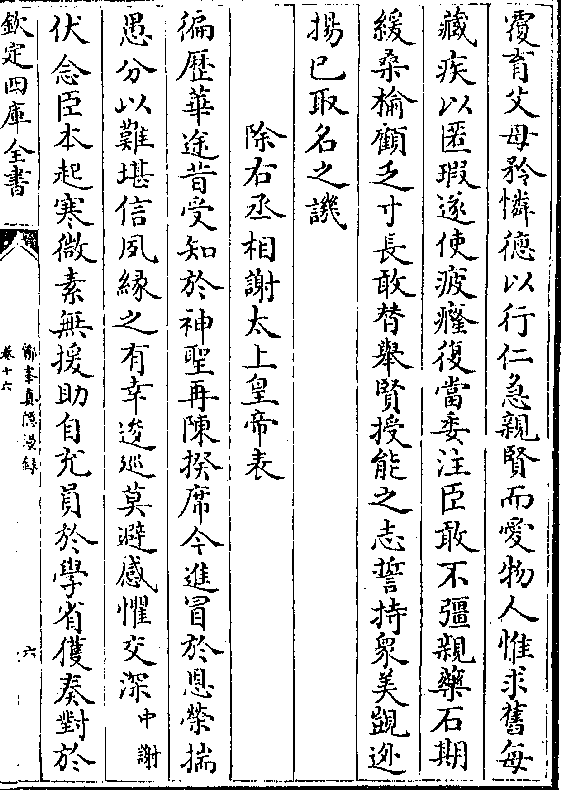 覆育父母矜憐德以行仁急親賢而愛物人惟求舊每
藏疾以匿瑕遂使疲癃復當委注臣敢不彊親藥石期
緩桑榆顧乏寸長敢替舉賢授能之志誓持衆美覬逃
揚已取名之譏
除右丞相謝太上皇帝表
徧歴華途昔受知於神聖再陳揆席今進冒於恩榮揣
愚分以難堪信夙縁之有幸逡巡莫避感懼交深中謝
伏念臣本起寒微素無援助自充員於學省獲奏對於
欽定四庫全書
鄮峯真隱漫録
卷十六
六